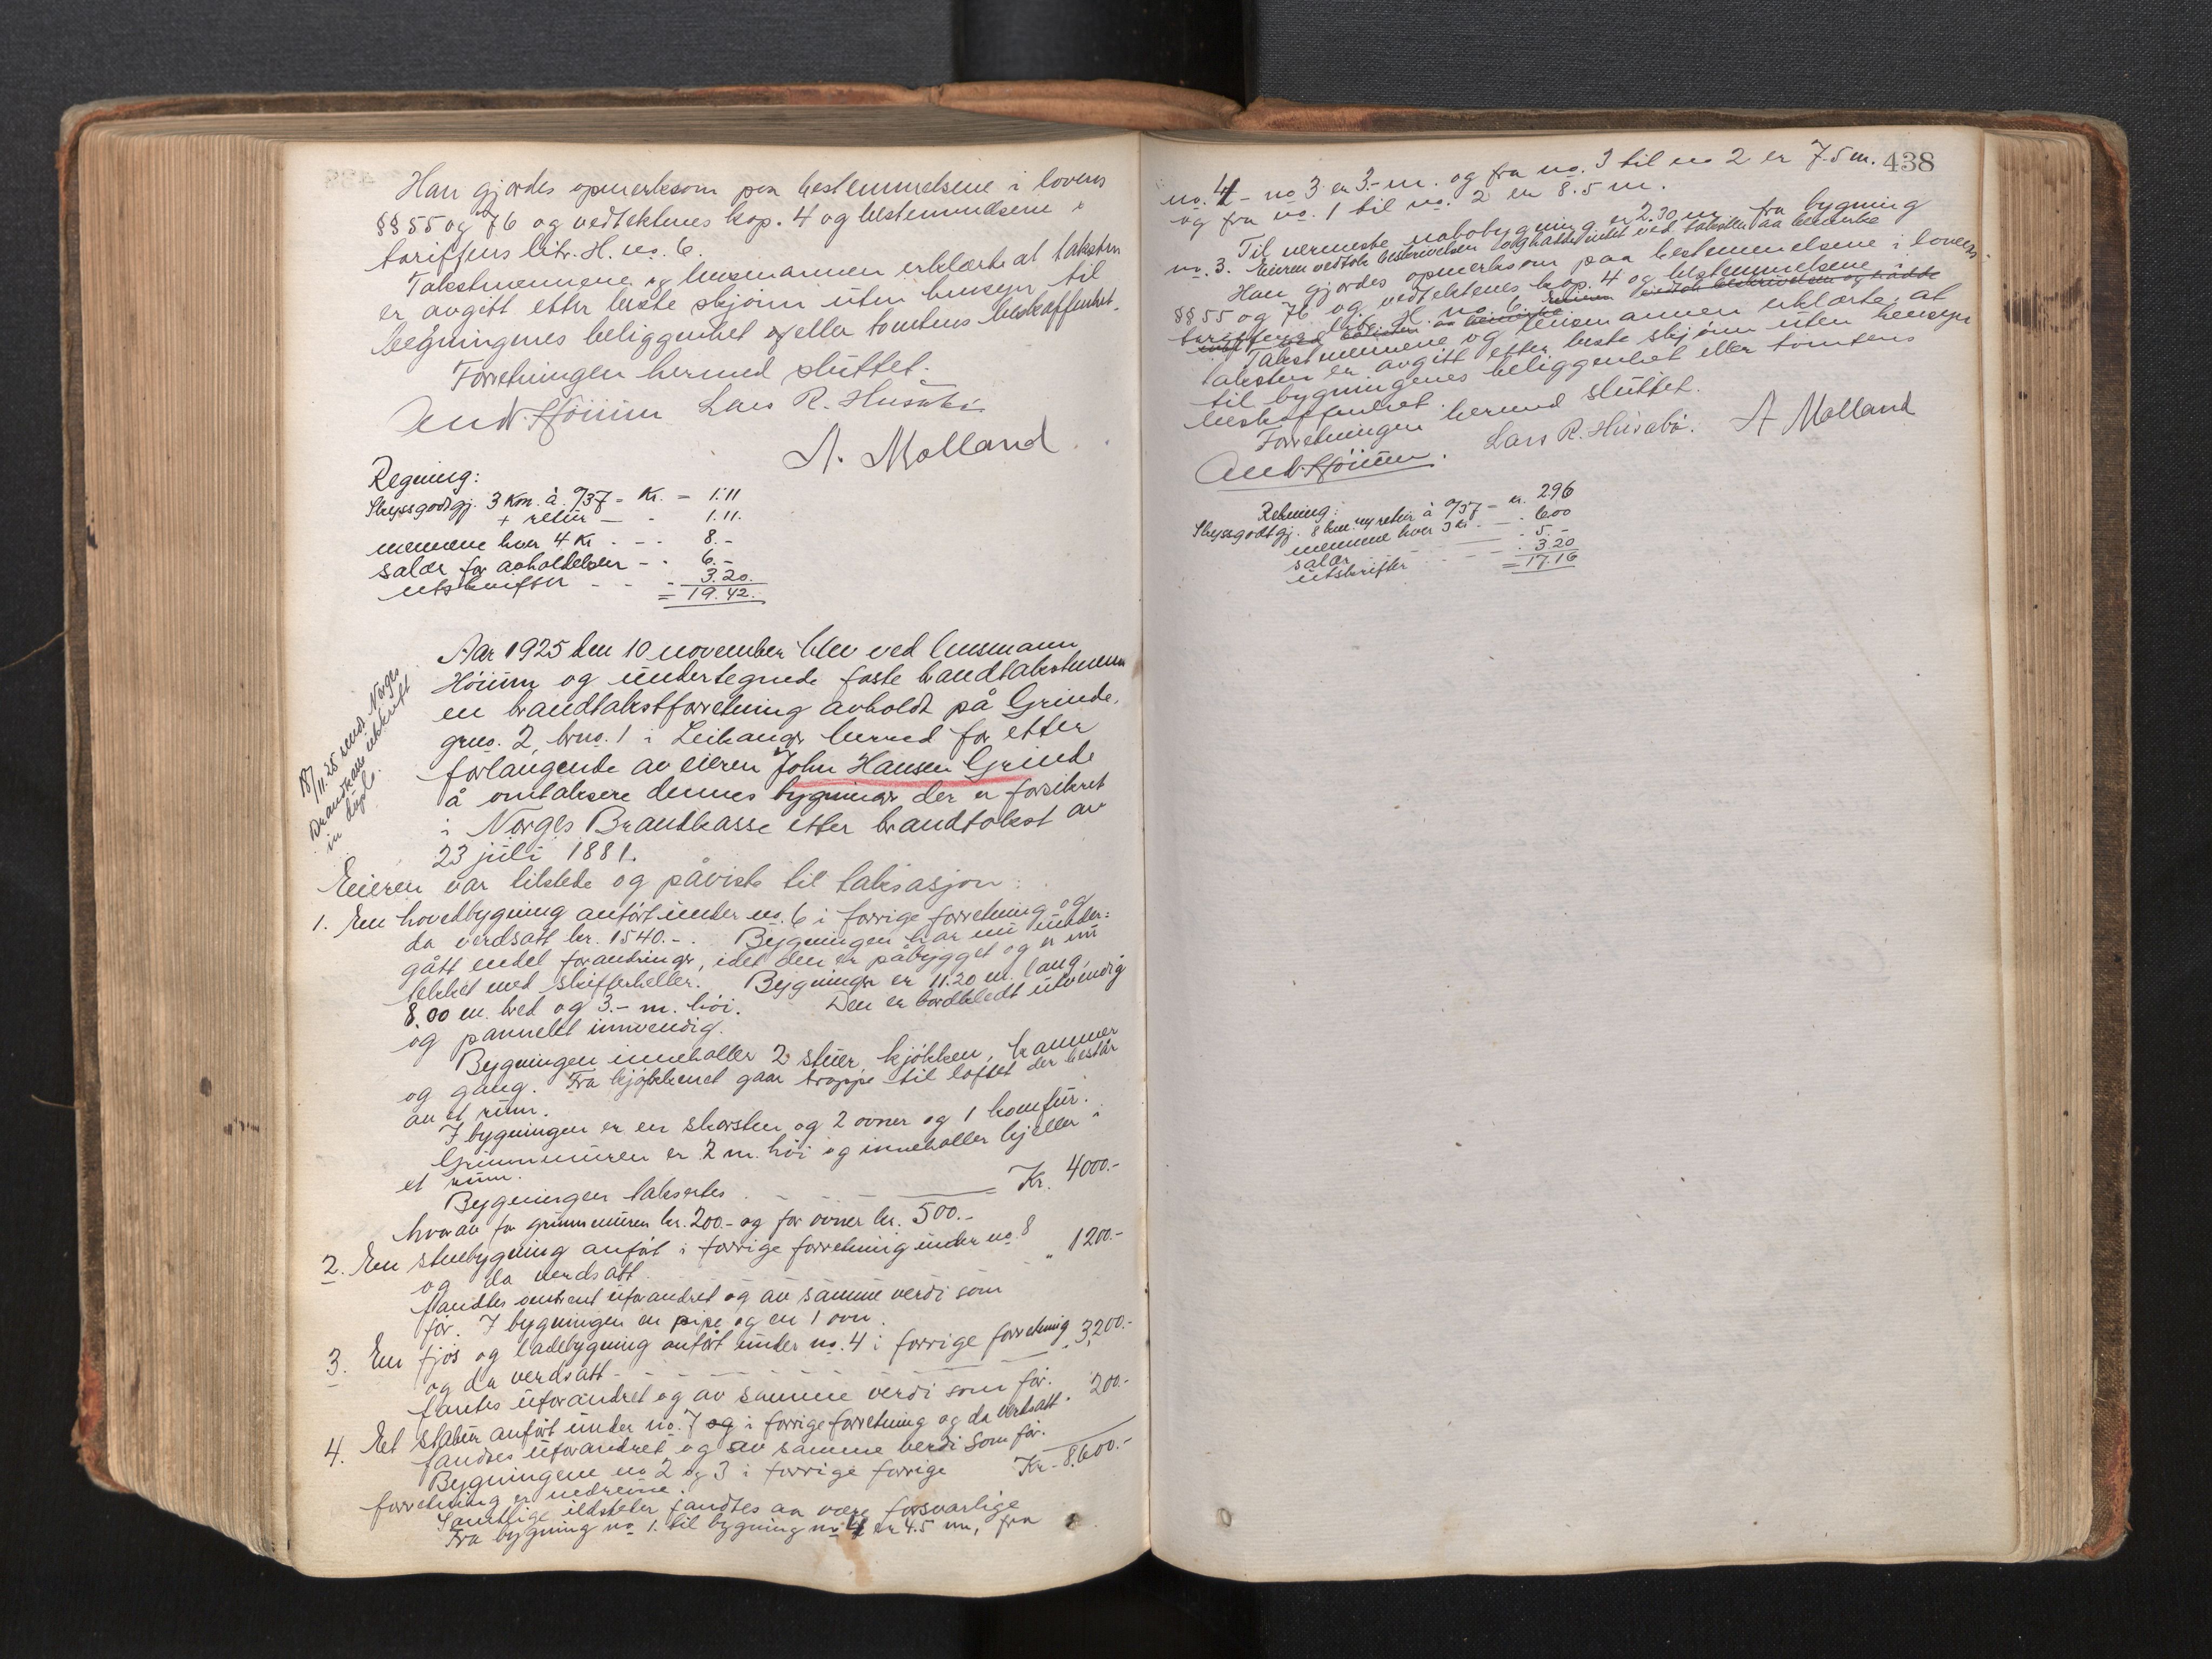 Han gjordes opmerksom paa bestemmelsene i lovens
§§ 55 og 76 og vedtektenes kap. 4 og bestemmelsene i
tariffens litr. H. no. 6.
Takstmennene og lensmannen erklærte at taksten
er avgitt etter beste skjønn uten hensyn til
bygningenes beliggenhet eller tomtens beskaffenhet.
Forretningen hermed sluttet.
And. Høium Lars R. Husabø
A. Molland
Regning:
Skyssgodtgj. 3 km. à 0/37 = Kr. = 1.11
+ retur — - 1.11.
mennene hver 4 Kr - - - 8.-
salær for avholdelsen - - 6.-
utskrifter - - - 3.20.
= 19.42.
18/11.25 send Norges
Brandkasse utskrift
in dupl.
Aar 1925 den 10 november blev ved lensmann
Høium og undertegnede faste brandtakstmenn
en brandtakstforretning avholdt på Grinde,
grno. 2, brno. 1 i Leikanger herred for etter
forlangende av eieren John Hansen Grinde
å omtaksere dennes bygninger der er forsikret
i Norges Brandkasse etter brandtakst av
23 juli 1881.
Eieren var tilstede og påviste til taksasjon:
1. En hovedbygning anført under no. 6 i forrige forretning og
da verdsatt kr. 1540.-. Bygningen har nu under-
gått endel forandringer, idet den er påbygget og er nu
tekket med skifferheller. Bygningen er 11.20 m. lang,
8.00 m. bred og 3.- m. høi. Den er bordkledt utvendig
og pannelt innvendig.
Bygningen inneholler 2 stuer, kjøkken, kammer
og gang. Fra kjøkkenet gaar trappe til loftet der består
av et rum.
I bygningen er en skorsten og 2 ovner og 1 komfur.
Grunnmuren er 2 m. høi og inneholler kjeller i
et rum.
Bygningen takseres - - Kr. 4000.-
hvorav for grunnmuren kr. 200.- og for ovner kr. 500.-
2. En stuebygning anført i forrige forretning under no. 8
og da verdsatt - - - " 1200.-
fandtes omtrent uforandret og av samme verdi som
før. I bygningen en pipe og en 1 ovn.
3. En fjøs og ladebygning anført under no. 4 i forrige forretning
og da verdsatt - - - - 3,200.-
fantes uforandret og av samme verdi som før.
4. Et stabur anført under no. 7 og i forrige forretning og da verdsatt. 200.-
fandtes uforandret og av samme verdi som før.
Bygningene no 2 og 3 i forrige forrige Kr. 8.600.-
forretning er nedrevne.
Samtlige ildsteder fandtes aa være forsvarlige
Fra bygning no 1. til bygning no 4 er 4.5 m, fra
438
no. 4 - no 3 er 3.- m. og fra no. 3 til no 2 er 7.5 m.
og fra no. 1 til no. 2 er 8.5 m.
Til nermeste nabobygning er 2.30 m fra bygning
no. 3. Eieren vedtok beskrivelsen og hadde intet ved taksten aa bemerke
Han gjordes opmerksom paa bestemmelsene i lovens
§§ 55 og 76 og vedtektenes kap. 4 og bestemmelsene i
tariffens litr. H. no. 6. eieren vedtok beskrivelsen og hadde
intet ved taksten aa bemerke.
Takstmennene og lensmannen erklærte at
taksten er avgitt etter beste skjønn uten hensyn
til bygningenes beliggenhet eller tomtens
beskaffenhet.
Forretningen hermed sluttet.
And. Høium. Lars R. Husabø. A Molland
Rekning:
Skyssgodtgj. 8 km. m/ retur à 0/37 = kr. 2.96
mennene hver 3 kr. — - 6.00
salær — - 5.-
utskrifter - - - - 3.20
= 17.16